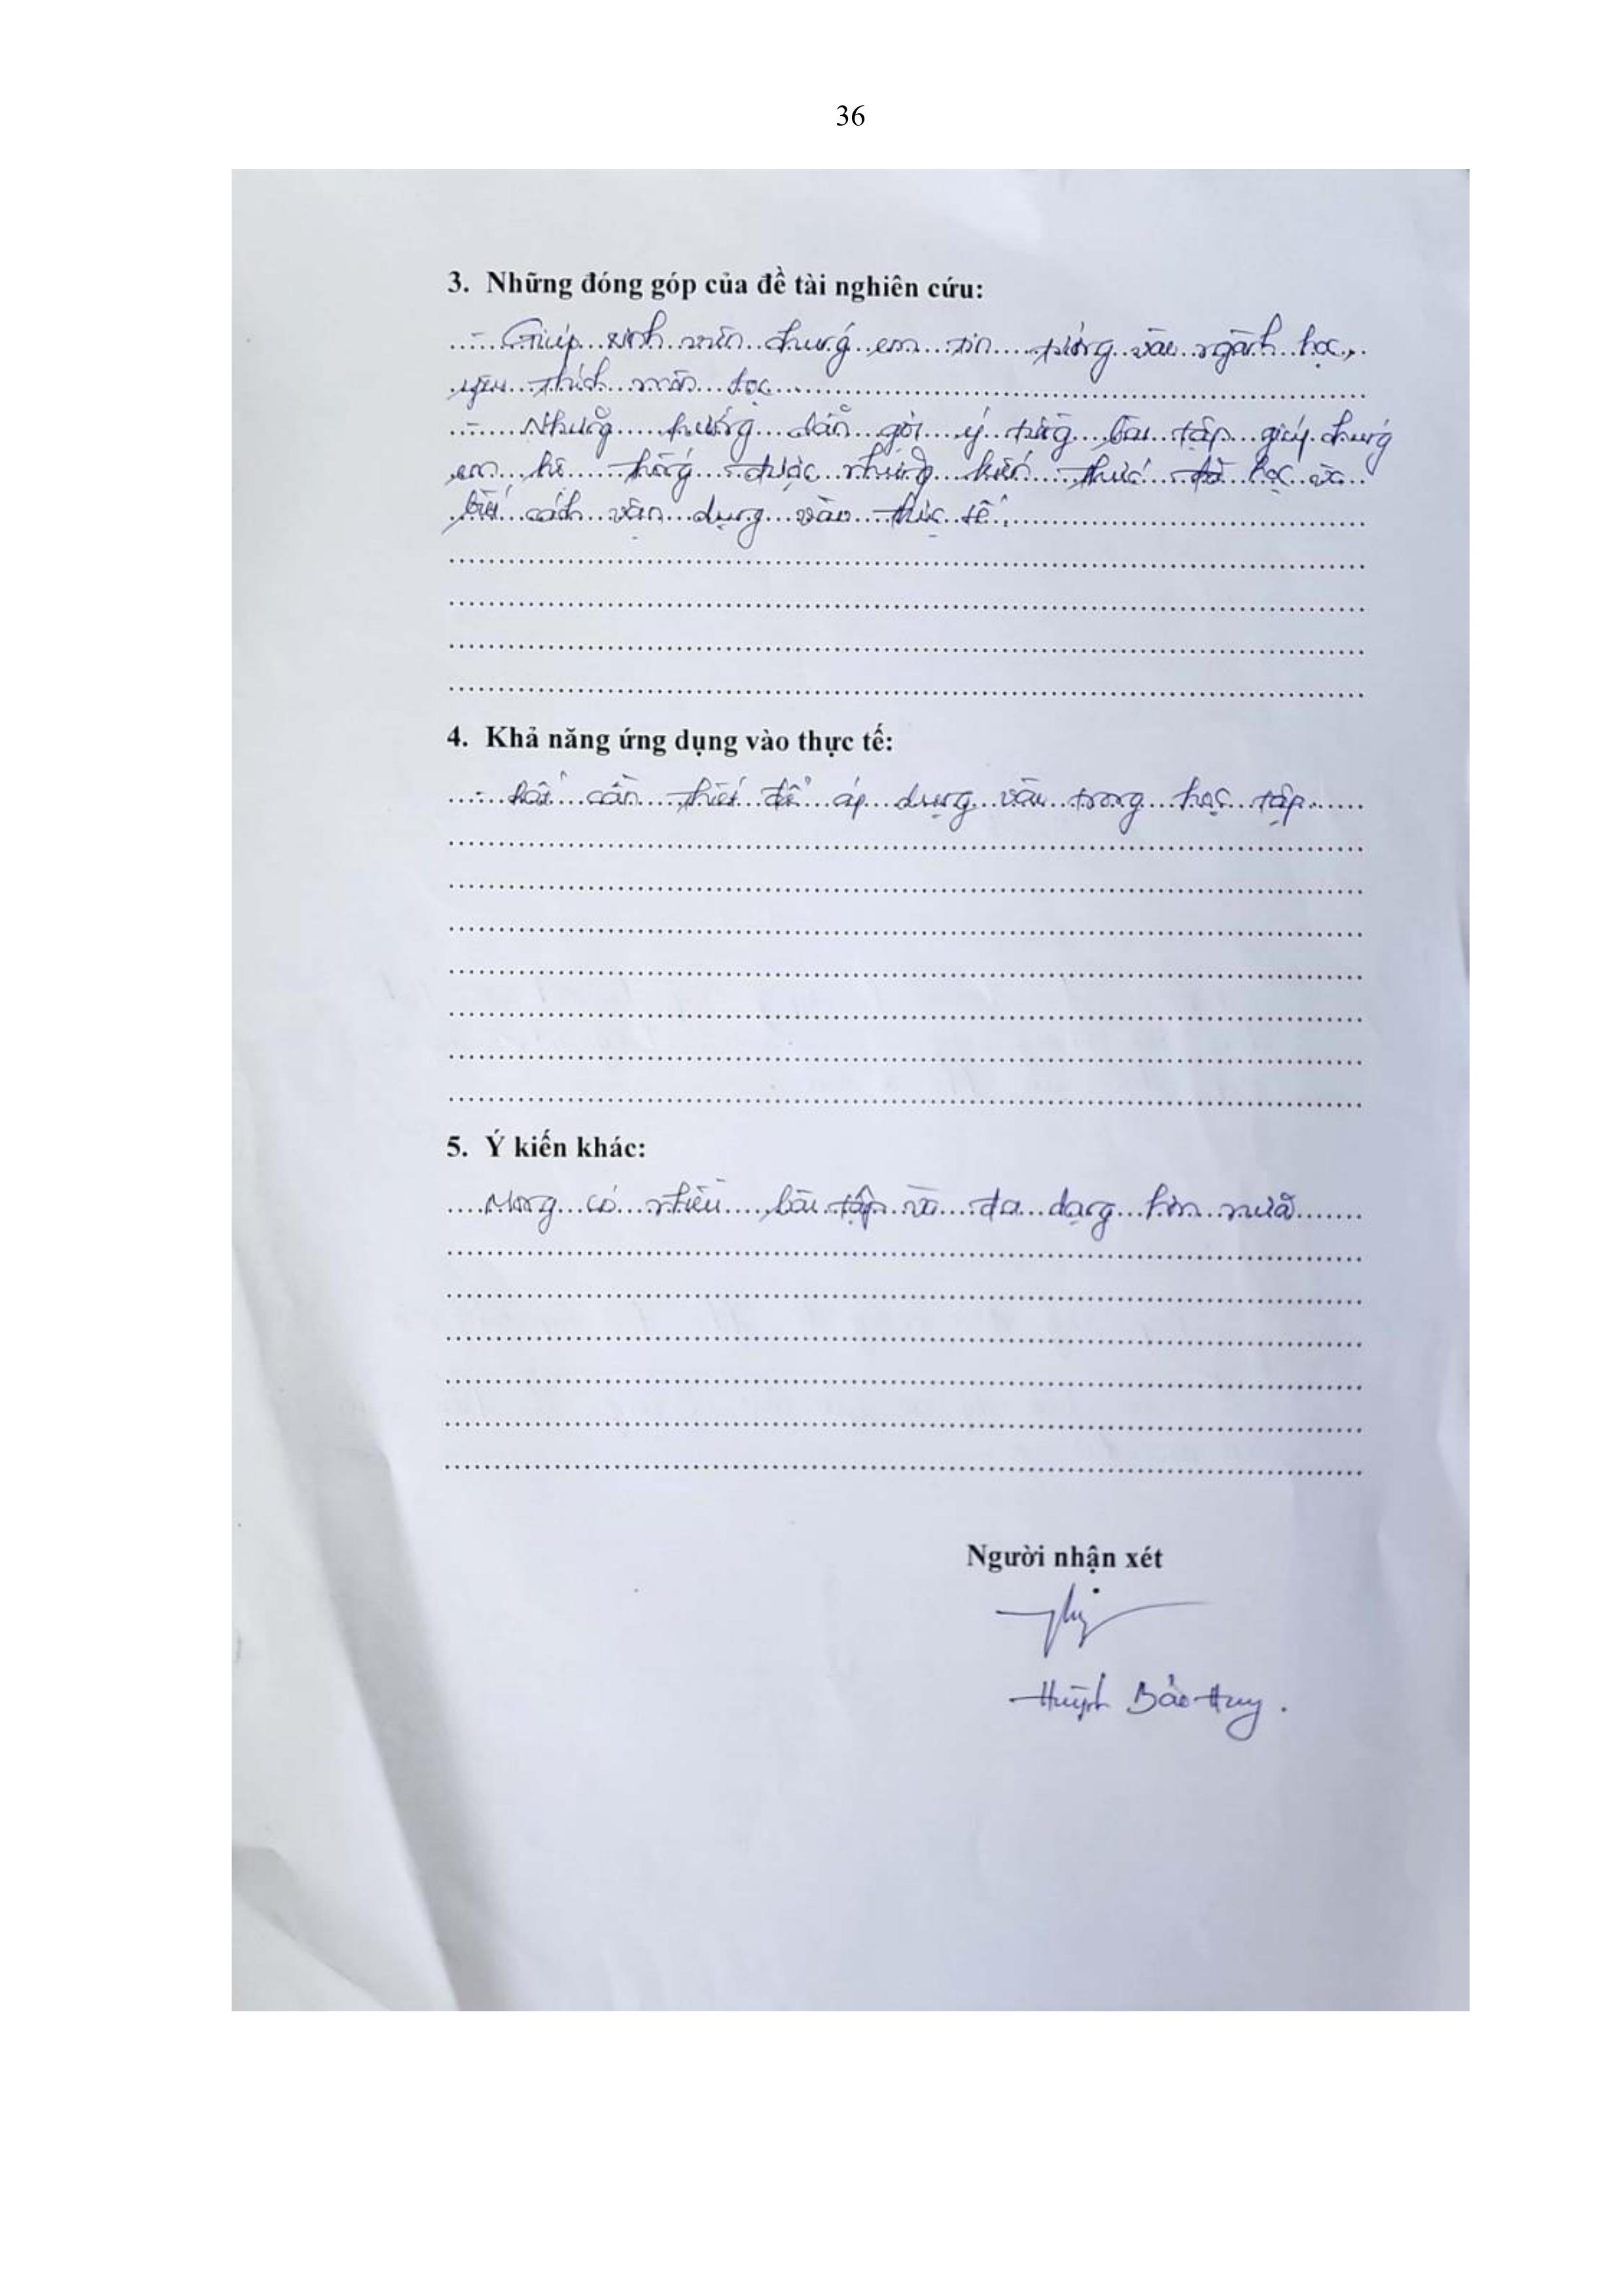 36
3. Những đóng góp của đề tài nghiên cứu:
- Giúp sinh viên chúng em tin tưởng vào ngành học,
yêu thích môn học
- Những hướng dẫn gợi ý từng bài tập giúp chúng
em hệ thống được những kiến thức đã học và
biết cách vận dụng vào thực tế.
4. Khả năng ứng dụng vào thực tế:
- Rất cần thiết để áp dụng vào trong học tập
5. Ý kiến khác:
Mong có nhiều bài tập và đa dạng hơn nữa
Người nhận xét
Huỳnh Bảo Huy.